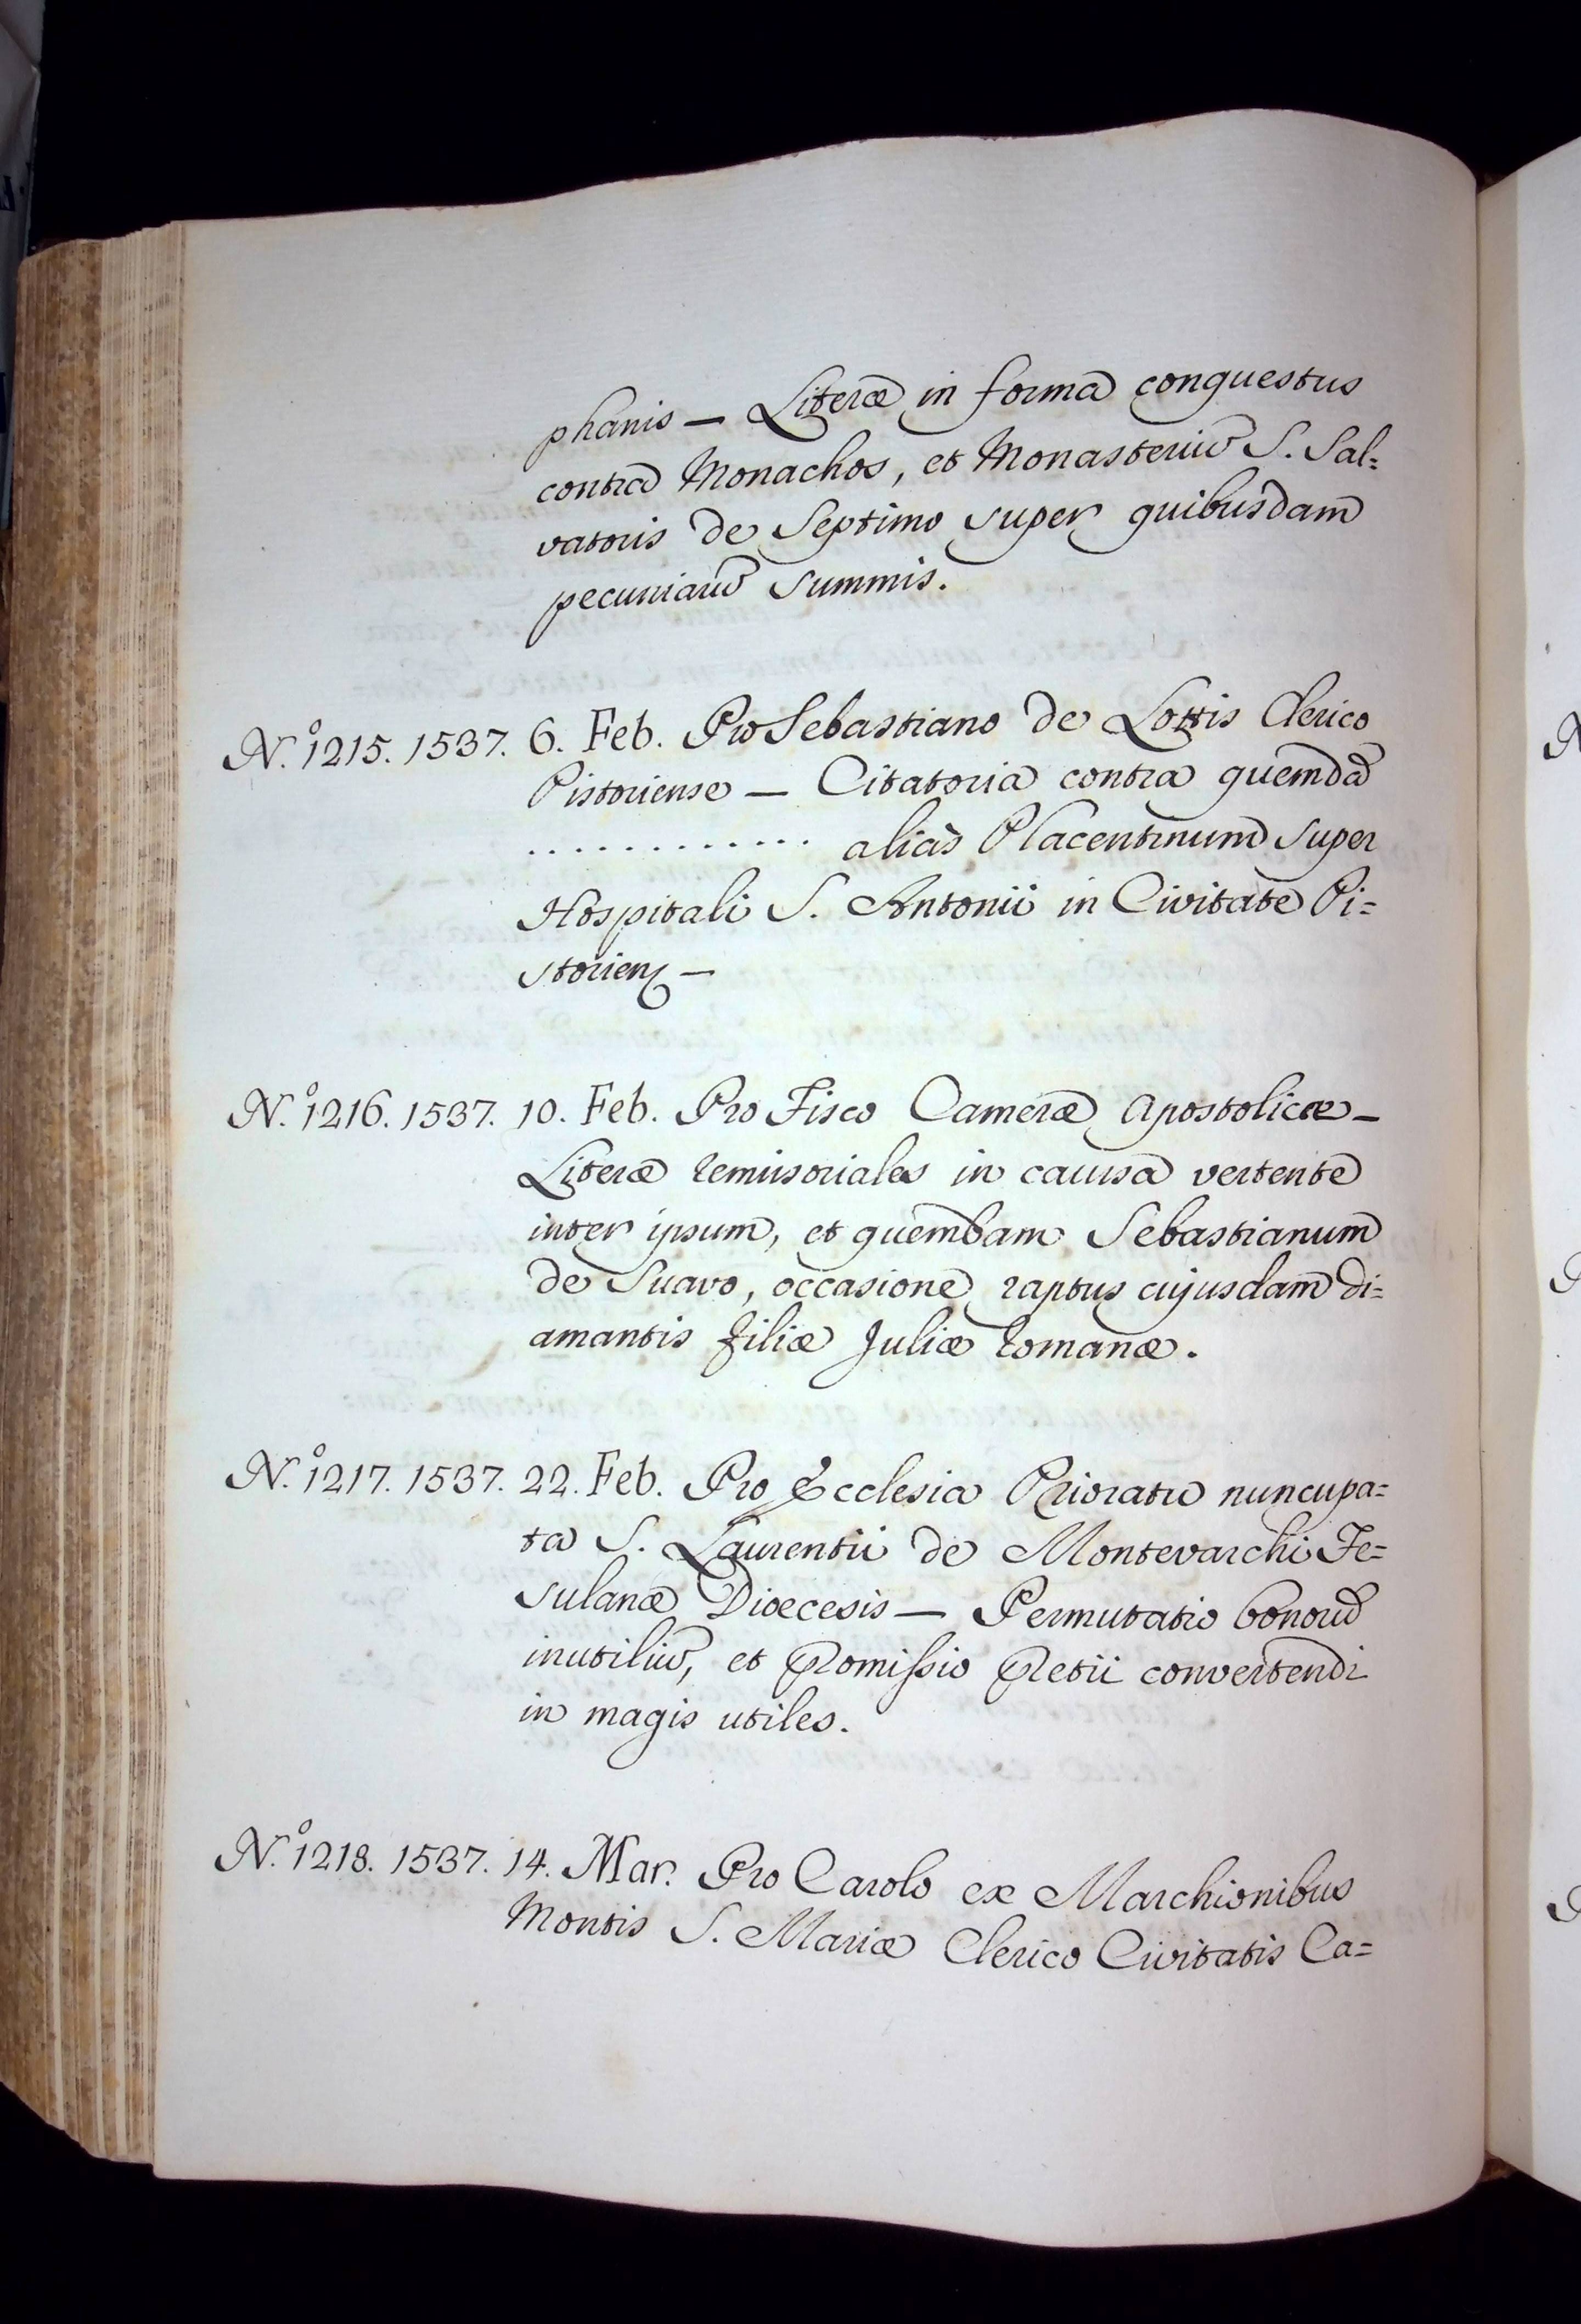 phanis — Literæ in forma conquestus
contra Monachos, et Monasteriū S. Sal=
vatoris de Septimo super quibusdam
pecuniarū summis.
N.º 1215. 1537. 6. Feb. Pro Sebastiano de Lottis Clerico
Pistoriense — Citatoria contra quemdā
............. aliàs Placentinum super
Hospitali S. Antonii in Civitate Pi=
storien —
N.º 1216. 1537. 10. Feb. Pro Fisco Cameræ Apostolicæ —
Literæ remissoriales in caussa vertente
inter ipsum, et quembam Sebastianum
de Suavo, occasione raptus cujusdam Di=
amantis filiæ Juliæ Romanæ.
N.º 1217. 1537. 22. Feb. Pro Ecclesia Prioratu nuncupa=
ta S. Laurentii de Montevarchi Fe=
sulanæ Dioecesis — Permutatio bonorū
inutiliū, et promissio pretii convertendi
in magis utiles.
N.º 1218. 1537. 14. Mar. Pro Carolo ex Marchionibus
Montis S. Mariæ Clerico Civitatis Ca=